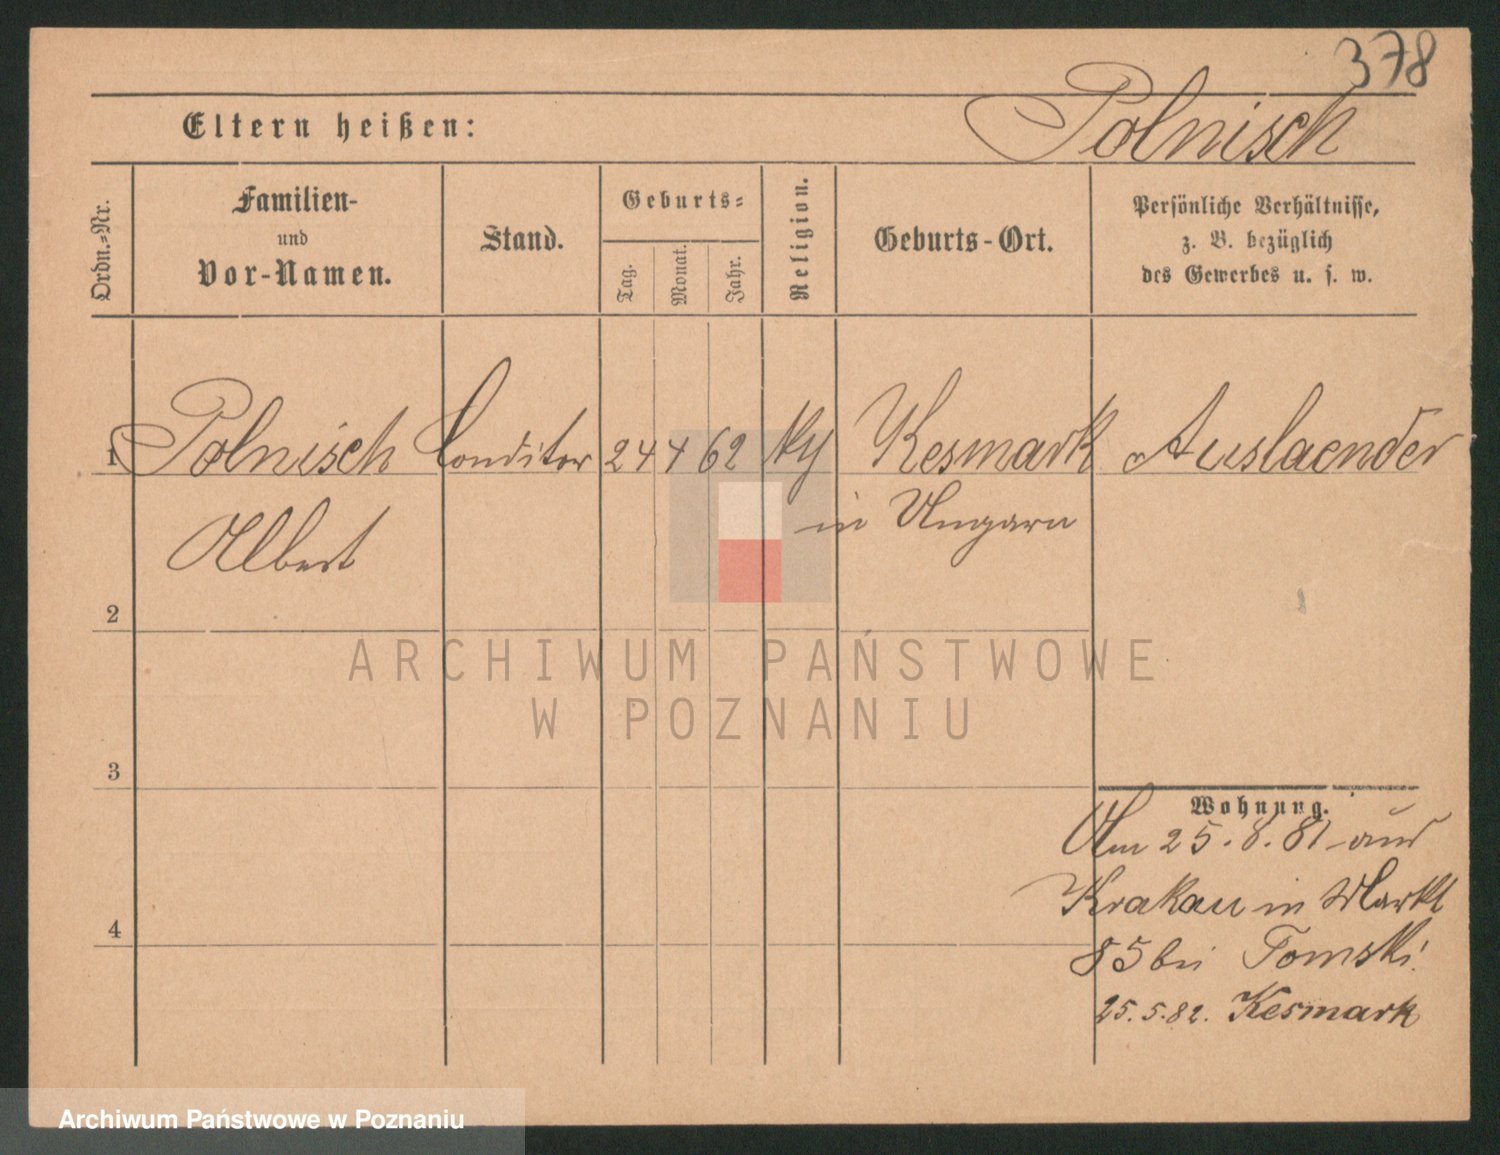 378
Eltern heißen: Polnisch
Ordn.=Nr.
Familien-
und
Vor-Namen.
Stand.
Geburts=
Tag.
Monat.
Jahr.
Religion.
Geburts-Ort.
Persönliche Verhältnisse,
z. B. bezüglich
des Gewerbes u. s. w.
1 Polnisch Conditor 24 4 62 Kesmark Auslaender
in Ungarn
Albert
2
ARCHIWUM PAŃSTWOWE
W POZNANIU
3
Wohnung.
Am 25.8.81 aus
Krakau in Markt
85 bei Tomski.
4
25.5.82. Kesmark
Archiwum Państwowe w Poznaniu